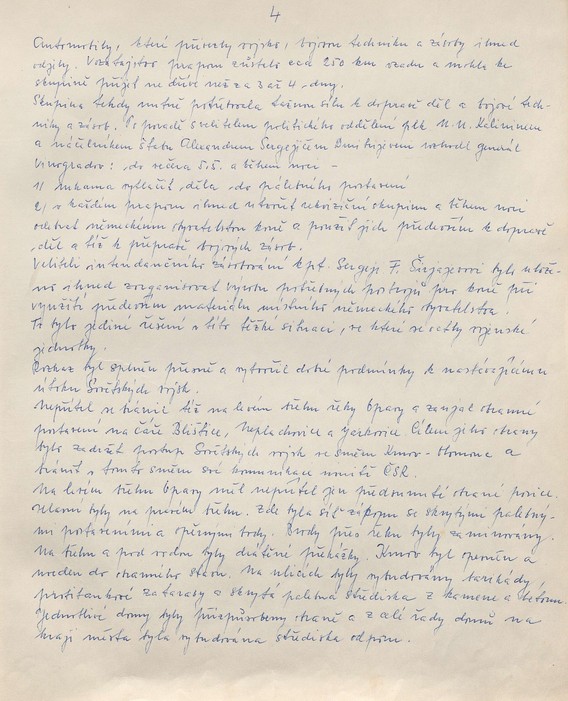 4
Automobily, které přivezly vojsko, bojovou techniku a zásoby ihned
odjely. Vozatajstvo praporu zůstalo cca 250 km vzadu a mohlo ke
skupině přijet ne dříve než za 3 až 4 dny.
Skupina tehdy nutně potřebovala tažnou sílu k dopravě děl a bojové tech-
niky a zásob. Po poradě s velitelem politického oddělení plk N. N. Kalininem
a náčelníkem štábu Alexandrem Sergejičem Dmitrijevem rozhodl generál
Vinogradov: do večera 5.5. a během noci -
1) rukama vytlačit děla do palebného postavení
2) v každém praporu ihned utvořit rekviziční skupinu a během noci
odebrat německému obyvatelstvu koně a použít jich především k dopravě
děl a též k přepravě bojových zásob.
Veliteli intendančního zásobování kpt. Sergeji F. bylo ulože-
no ihned zorganizovat výrobu potřebných postrojů pro koně při
využití především materiálu místního německého obyvatelstva.
To bylo jediné řešení v této těžké situaci, ve které se ocitly vojenské
jednotky.
Rozkaz byl splněn přesně a vytvořil dobré podmínky k nastávajícímu
útoku Sovětských vojsk.
Nepřítel se bránil též na levém břehu řeky Opavy a zaujal obranné
postavení na čáře Brištice, Neplachovice a Cílem jeho obrany
bylo zadržet postup Sovětských vojsk ve směru Krnov - Olomouc a
bránit v tomto směru své komunikace uvnitř ČSR.
Na levém břehu Opavy měl nepřítel jen předsunuté obrané posice.
Hlavní byly na pravém břehu. Zde byla síť zákopů se skrytými palebný-
mi postaveními a opěrnými body. Brody přes řeku byly zaminovány.
Na břehu a pod vodou byly drátěné překážky. Krnov byl opevněn a
uveden do obranného stavu. Na ulicích byly vybudovány barikády,
protitankové zátarasy a skrytá palebná střediska z kamene a betonu.
Jednotlivé domy byly přizpůsobeny obraně a z celé řady domů na
kraji města byla vybudována střediska odporu.